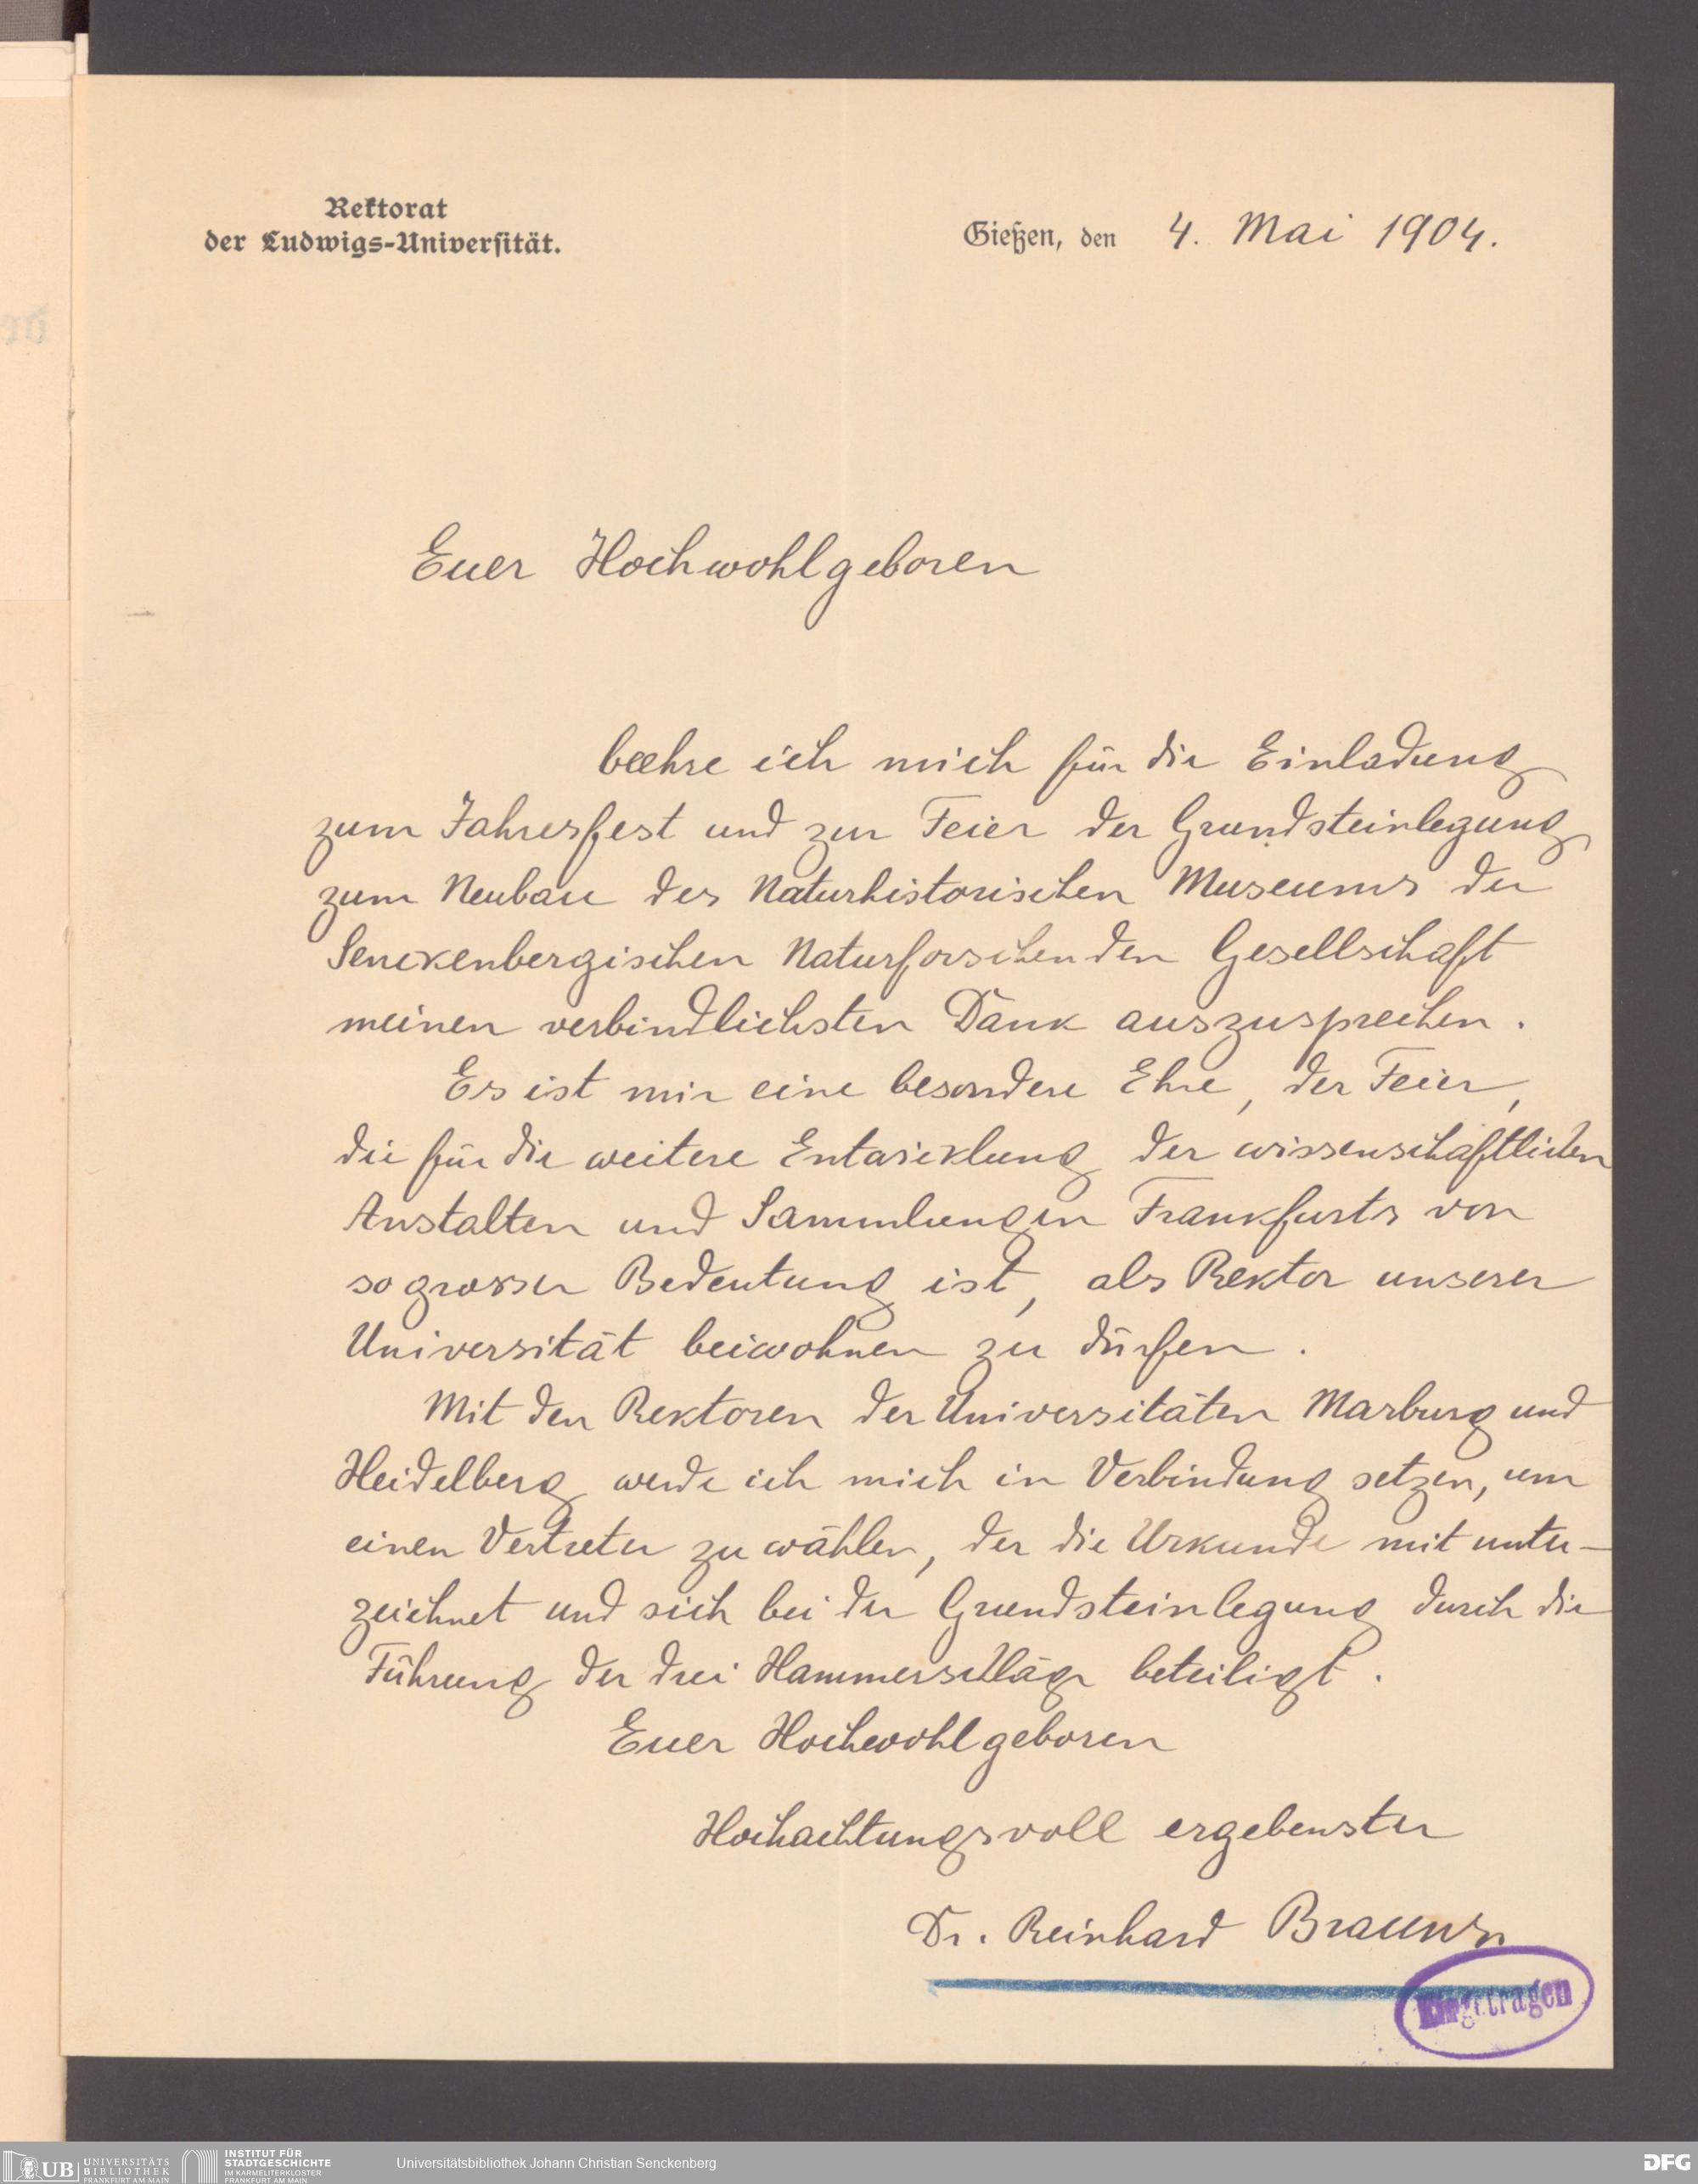 Rektorat
der Ludwigs-Universität.
Gießen, den 4. Mai 1904.
Euer Hochwohlgeboren
beehre ich mich für die Einladung
zum Jahresfest und zur Feier der Grundsteinlegung
zum Neubau des Naturhistorischen Museums der
Senckenbergischen Naturforschenden Gesellschaft
meinen verbindlichsten Dank auszusprechen.
Es ist mir eine besondere Ehre, der Feier,
die für die weitere Entwicklung der wissenschaftlichen
Anstalten und Sammlungen Frankfurts von
so grosser Bedeutung ist, als Rektor unserer
Universität beiwohnen zu dürfen.
Mit den Rektoren der Universitäten Marburg und
Heidelberg werde ich mich in Verbindung setzen, um
einen Vertreter zu wählen, der die Urkunde mit unter-
zeichnet und sich bei der Grundsteinlegung durch die
Führung der drei Hammerschläge beteiligt.
Euer Hochwohlgeboren
Hochachtungsvoll ergebenster
Dr. Reinhard Brauns
Eingetragen
UB UNIVERSITÄTS BIBLIOTHEK FRANKFURT AM MAIN
INSTITUT FÜR STADTGESCHICHTE IM KARMELITERKLOSTER FRANKFURT AM MAIN
Universitätsbibliothek Johann Christian Senckenberg
DFG